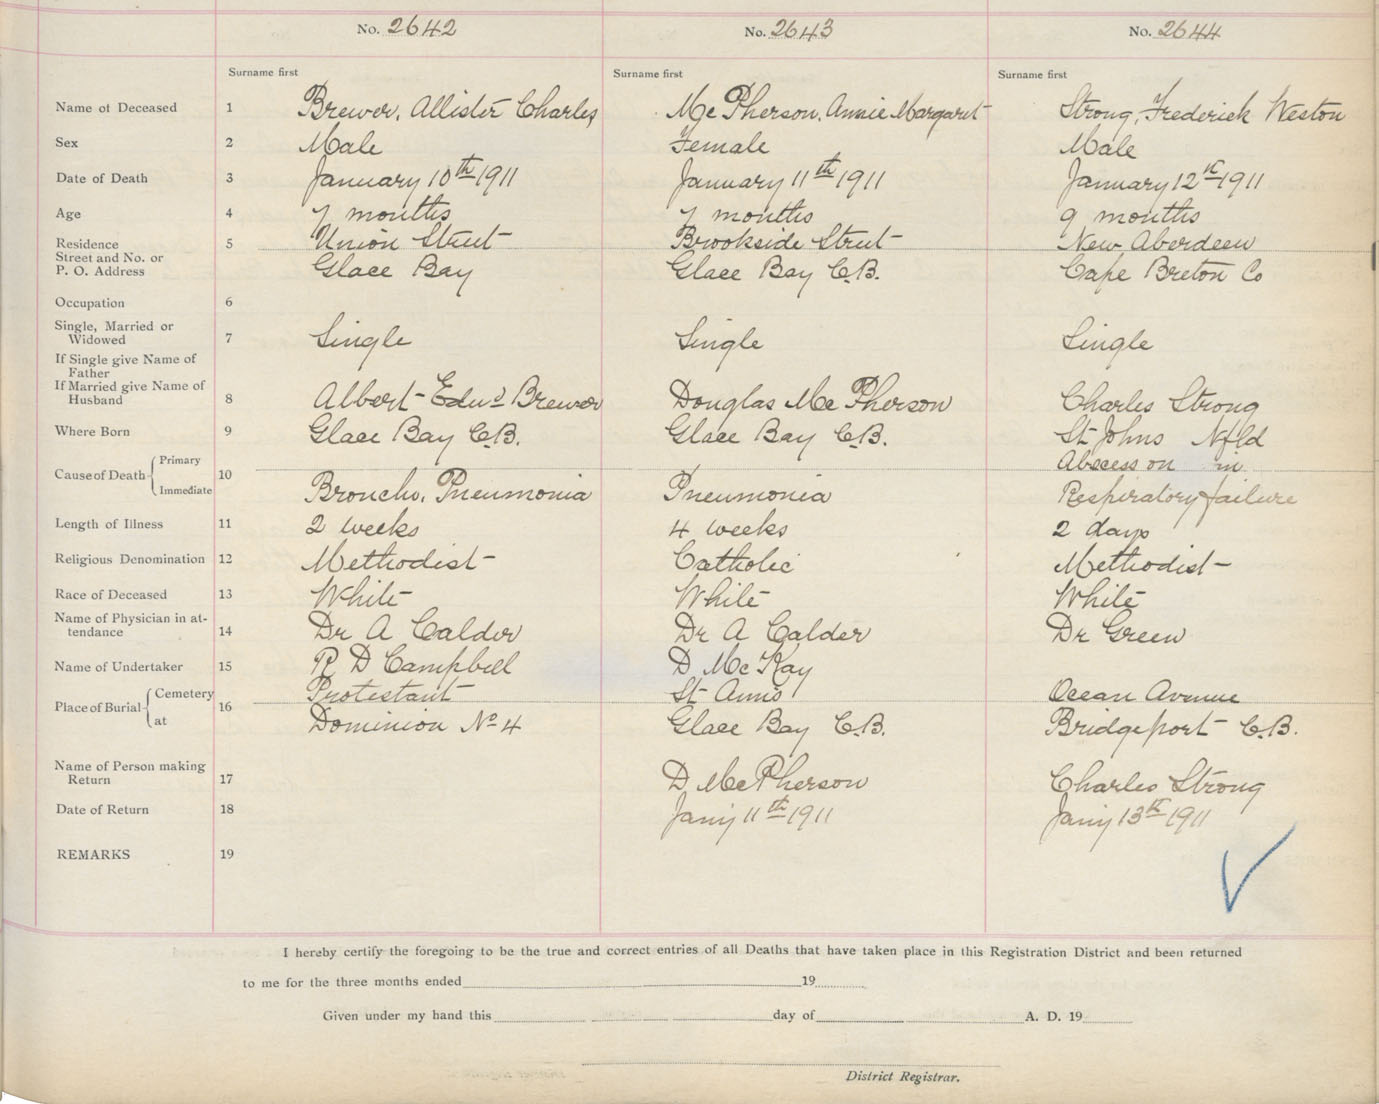 No. 2642 No. 2643 No. 2644
Surname first Surname first Surname first
Name of Deceased 1 Brewer, Allister Charles Mc Pherson, Annie Margaret Strong, Frederick Weston
Sex 2 Male Female Male
Date of Death 3 January 10th 1911 January 11th 1911 January 12th 1911
Age 4 7 months 7 months 9 months
Residence 5 Union Street Brookside Street New Aberdeen
Street and No. or
P. O. Address Glace Bay Glace Bay C.B. Cape Breton Co
Occupation 6
Single, Married or
Widowed 7 Single Single Single
If Single give Name of
Father
If Married give Name of
Husband 8 Albert Edwd Brewer Douglas Mc Pherson Charles Strong
Where Born 9 Glace Bay C.B. Glace Bay C.B. St Johns Nfld
Primary Abscess on in
Cause of Death 10
Immediate Broncho, Pneumonia Pneumonia Respiratory failure
Length of Illness 11 2 weeks 4 weeks 2 days
Religious Denomination 12 Methodist Catholic Methodist
Race of Deceased 13 White White White
Name of Physician in at-
tendance 14 Dr A Calder Dr A Calder Dr Green
Name of Undertaker 15 R D Campbell D Mc Kay
Cemetery Protestant St Anns Ocean Avenue
Place of Burial 16
at Dominion No 4 Glace Bay C.B. Bridgeport C.B.
Name of Person making
Return 17 D Mc Pherson Charles Strong
Date of Return 18 Jany 11th 1911 Jany 13th 1911
REMARKS 19
I hereby certify the foregoing to be the true and correct entries of all Deaths that have taken place in this Registration District and been returned
to me for the three months ended 19
Given under my hand this day of A. D. 19
District Registrar.